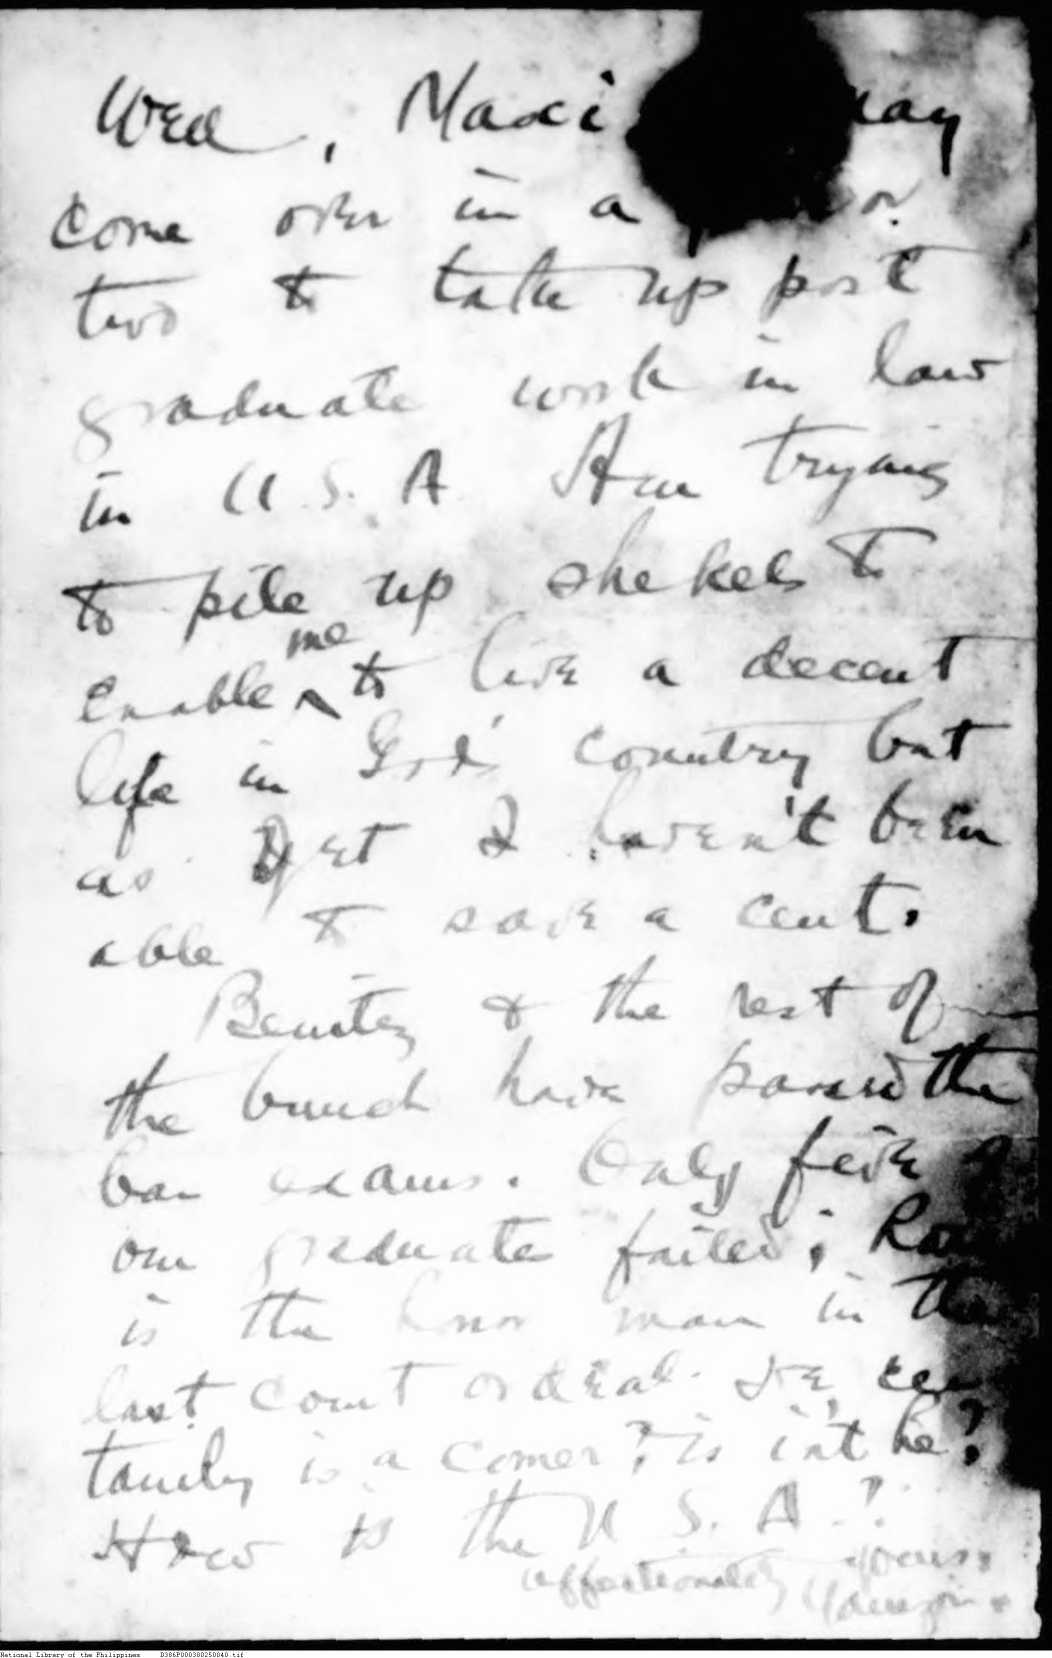 Well, Maxi may
come over in a year or
two to take up post
graduate work in law
in U.S.A. Am trying
to pile up shekels to
enable me to live a decent
life in God's country but
as yet I haven't been
able to save a cent.
Benitez & the rest of
the bunch have passed the
bar exams. Only five of
our graduate failed;
is the honor man in the
last court ordeal. He cer
tainly is a comer? is in't he?
How is the U.S.A.?
affectionately yours,
National Library of the Philippines D386P000380250040.tif